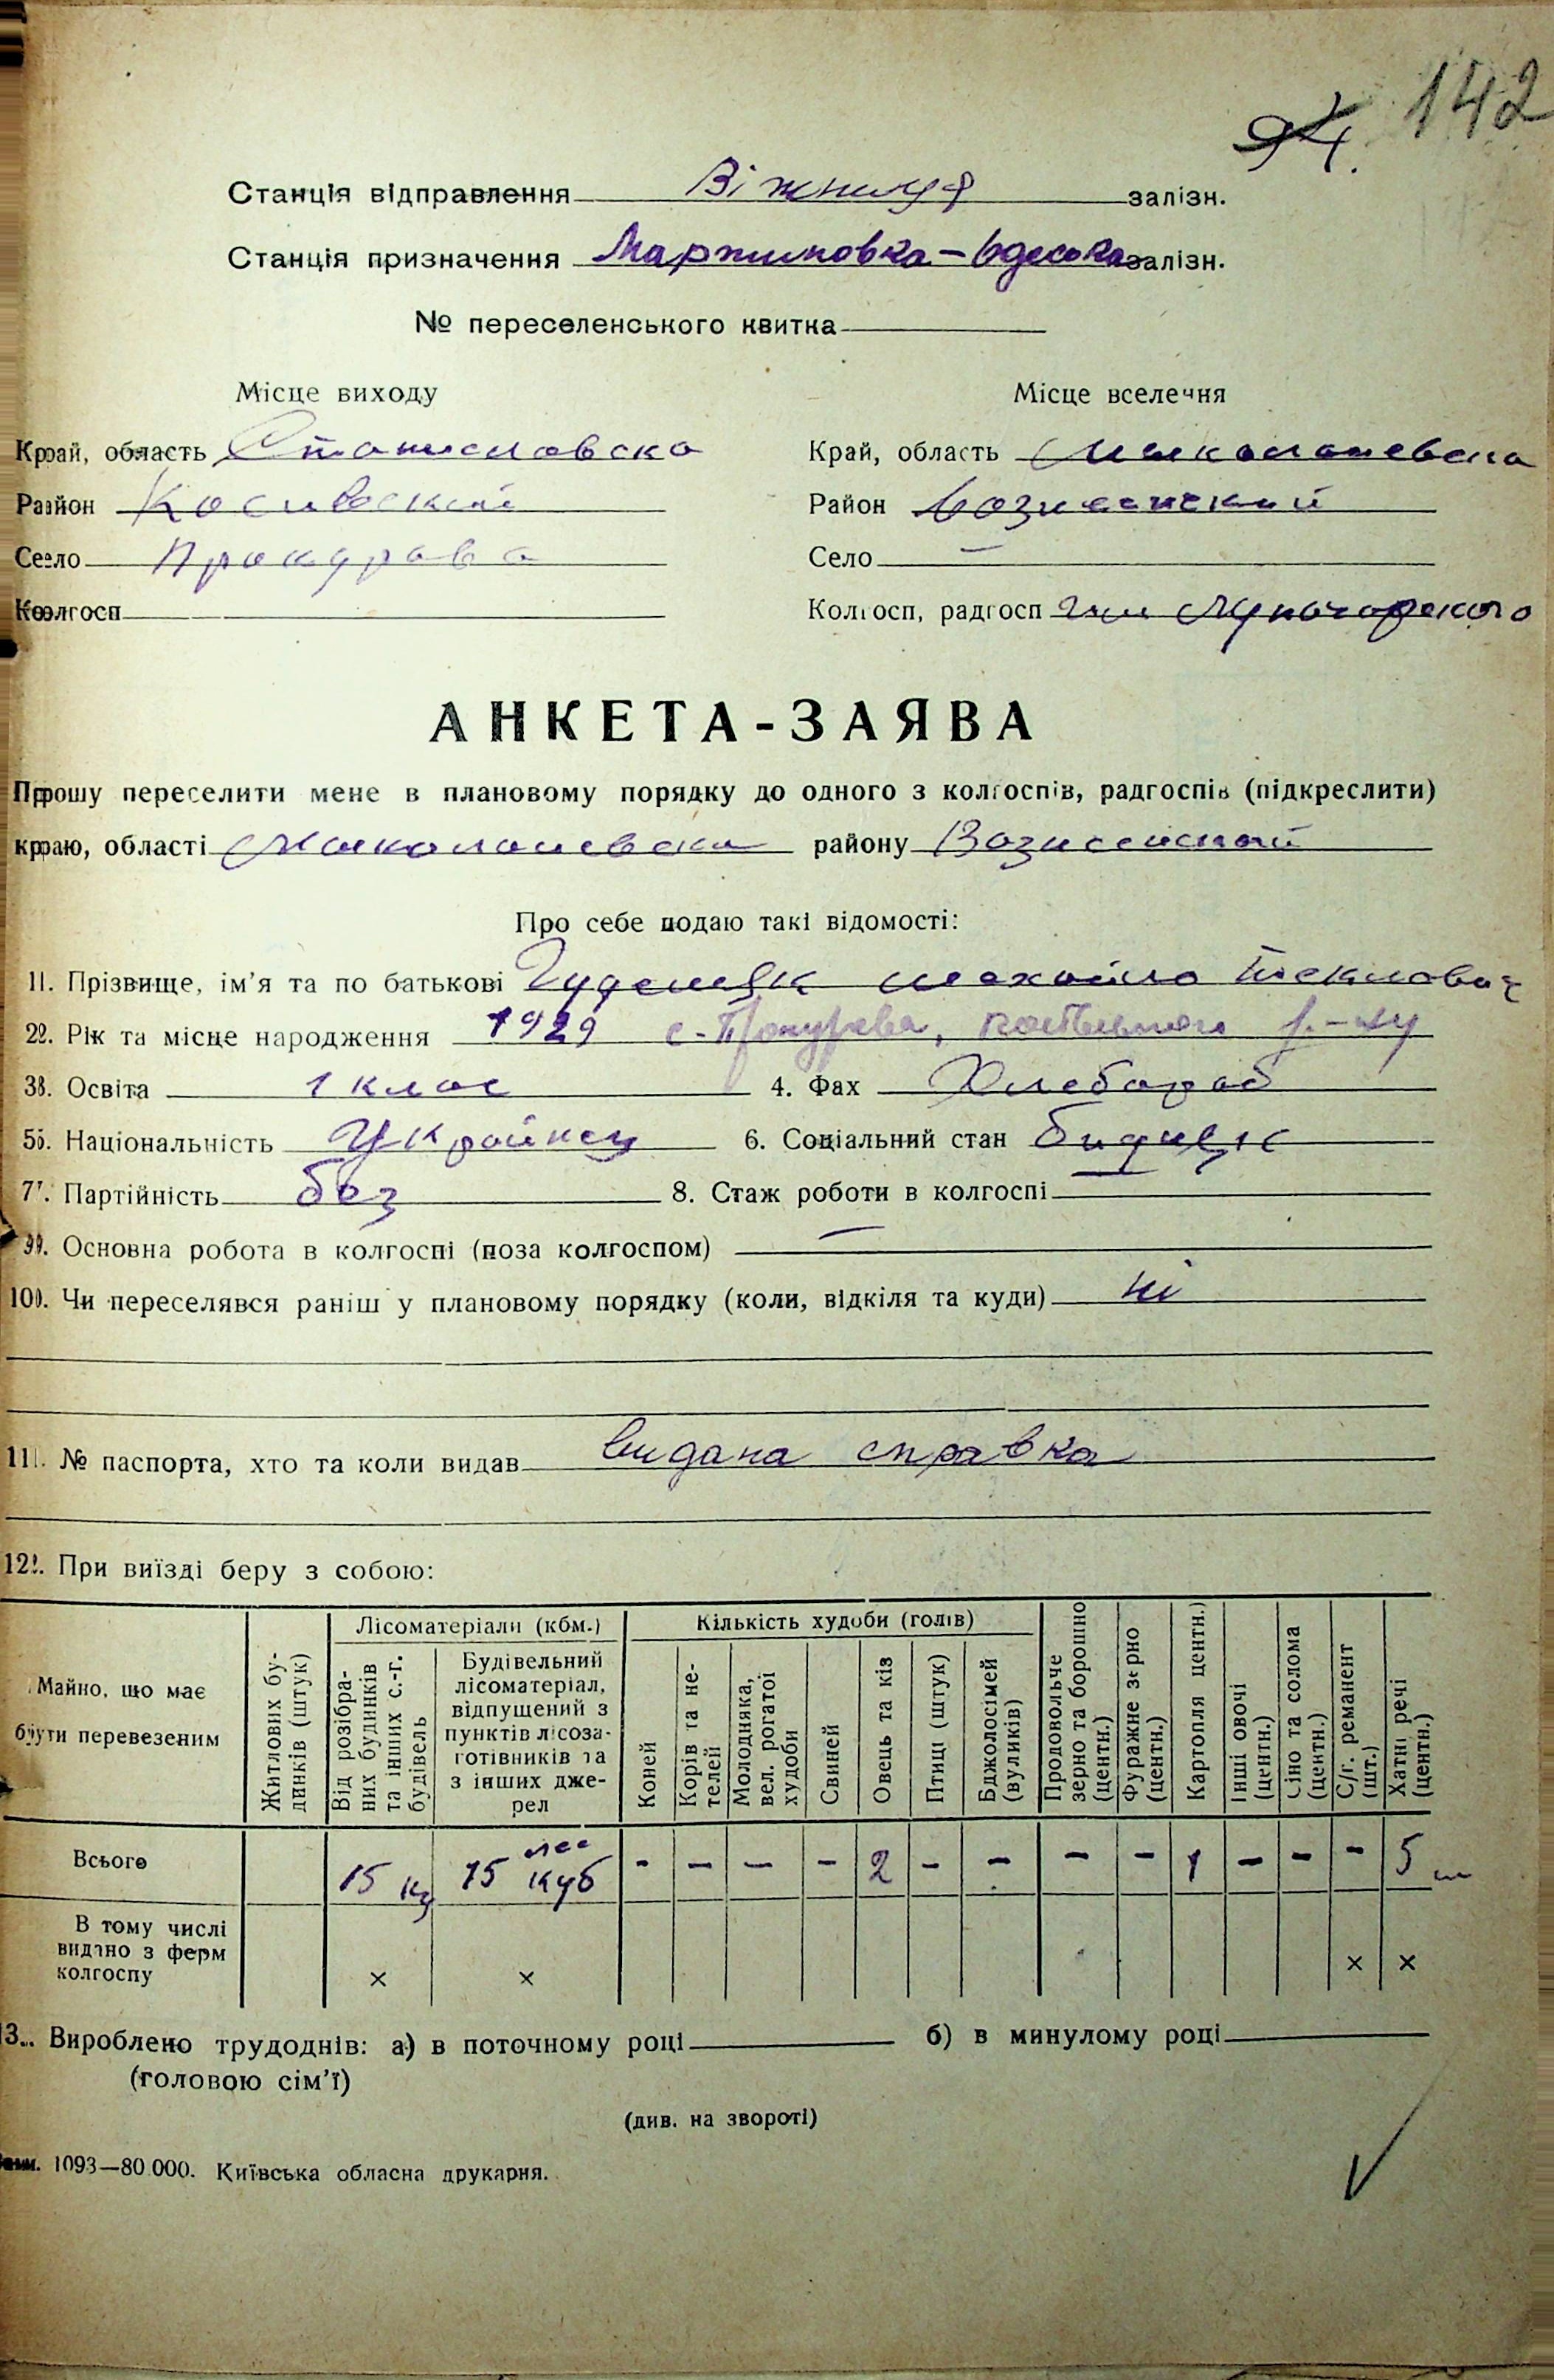 94. 142
Станція відправлення Віжниця залізн.
Станція призначення Мартиновка-Одеська залізн.
№ переселенського квитка
Місце виходу Місце вселечня
Край, область Станиславска Край, область Миколаиевска
Район Косивский Район Вознесенский
Село Прокурава Село —
Колгосп Колгосп, радгосп им Луночарского
АНКЕТА-ЗАЯВА
Прошу переселити мене в плановому порядку до одного з колгоспів, радгоспів (підкреслити)
краю, області Миколаиевска району Вознесенский
Про себе подаю такі відомості:
1. Прізвище, ім'я та по батькові Михайло
2. Рік та місце народження 1929 с. Прокурава, р-ну
3. Освіта 1 клас 4. Фах Хлебороб
5. Національність Украйнец 6. Соціальний стан бидняк
7. Партійність без 8. Стаж роботи в колгоспі —
9. Основна робота в колгоспі (поза колгоспом) —
10. Чи переселявся раніш у плановому порядку (коли, відкіля та куди) ні
11. № паспорта, хто та коли видав видана справка
12. При виїзді беру з собою:
Майно, що має бути перевезеним
Житлових будинків (штук)
Лісоматеріали (кбм.)
Від розібраних будинків та інших с.-г. будівель
Будівельний лісоматеріал, відпущений з пунктів лісозаготівників та з інших джерел
Кількість худоби (голів)
Коней
Корів та нетелей
Молодняка, вел. рогатої худоби
Свиней
Овець та кіз
Птиці (штук)
Бджолосімей (вуликів)
Продовольче зерно та борошно (центн.)
Фуражне зерно (центн.)
Картопля центн.)
Інші овочі (центн.)
Сіно та солома (центн.)
С/г. реманент (шт.)
Хатні речі (центн.)
Всього 15 ку 15 лес куб - - - - 2 - - - - 1 - - - 5
В тому числі видано з ферм колгоспу × × × ×
13. Вироблено трудоднів: а) в поточному році б) в минулому році
(головою сім'ї)
(див. на звороті)
Замм. 1093—80.000. Київська обласна друкарня.